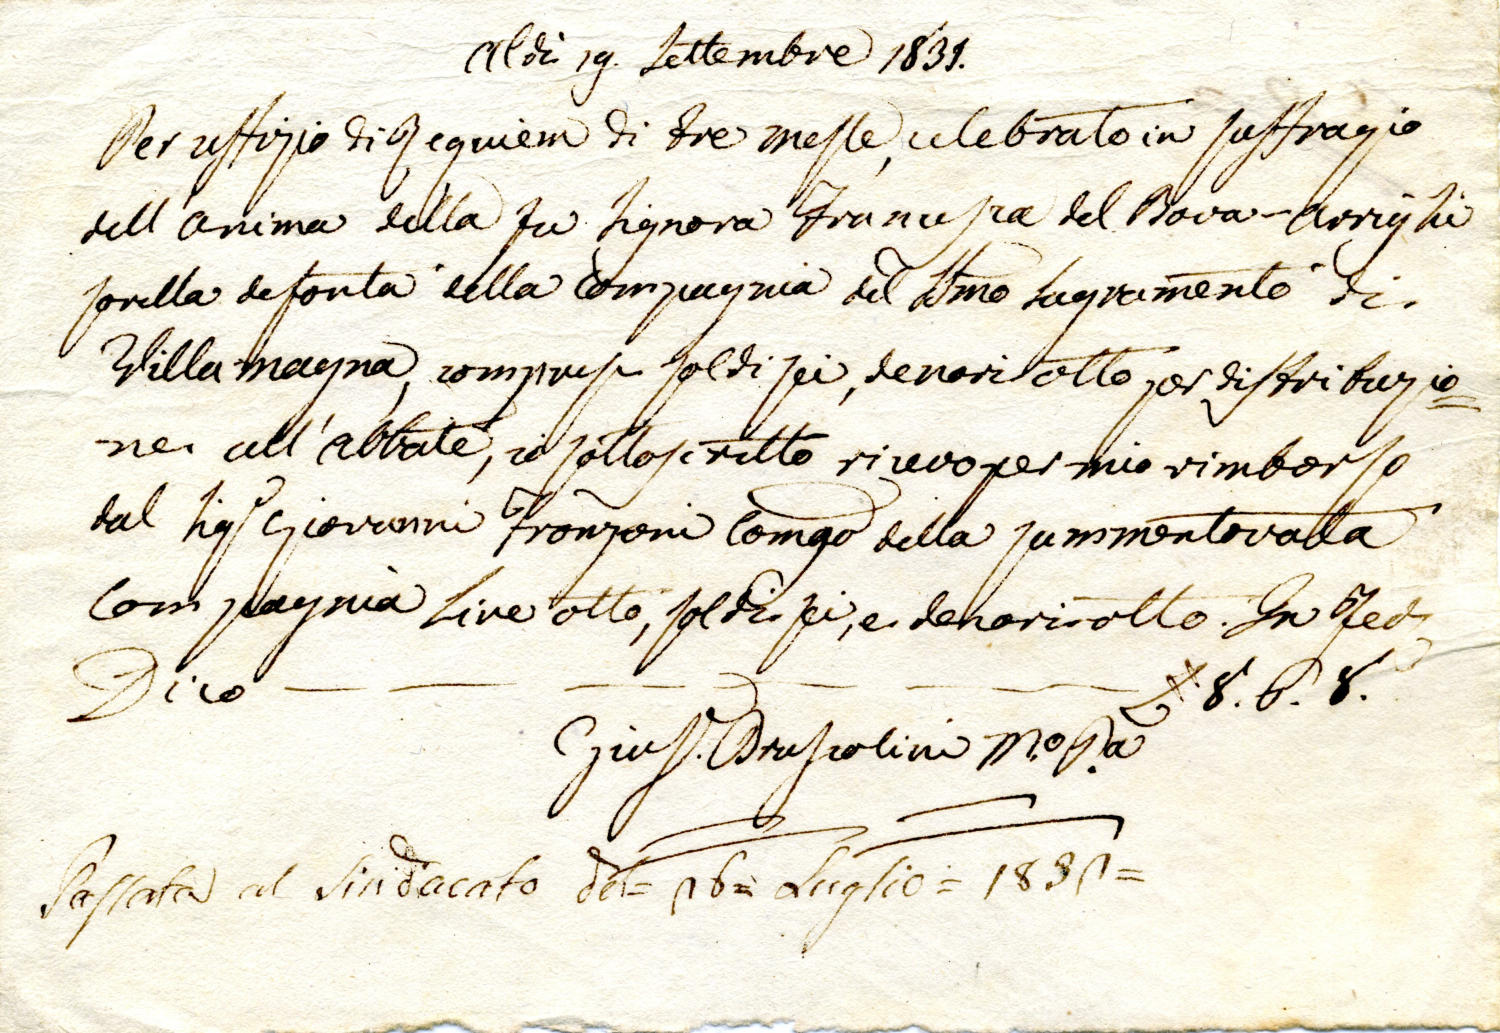 Al dì 19. Settembre 1831.
Per uffizio di Requiem di tre messe, celebrato in suffragio
dell'Anima della fu Signora Francesca del Bova-Arrighi
sorella defonta della Compagnia del SSmo Sagramento di
Villamagna, compresi soldi sei, denari otto per distribuzio=
ne all'Abbate, io sottoscritto ricevo per mio rimborso
dal Sigr Giovanni Fronzoni Camgo della summentovata
Compagnia Lire otto, soldi sei, e denari otto. In Fede
Dico — — — — — — £ 8. 6. 8.
Gius. Bruscolini Mo Pa
Passata al Sindacato del= 16= Luglio= 183